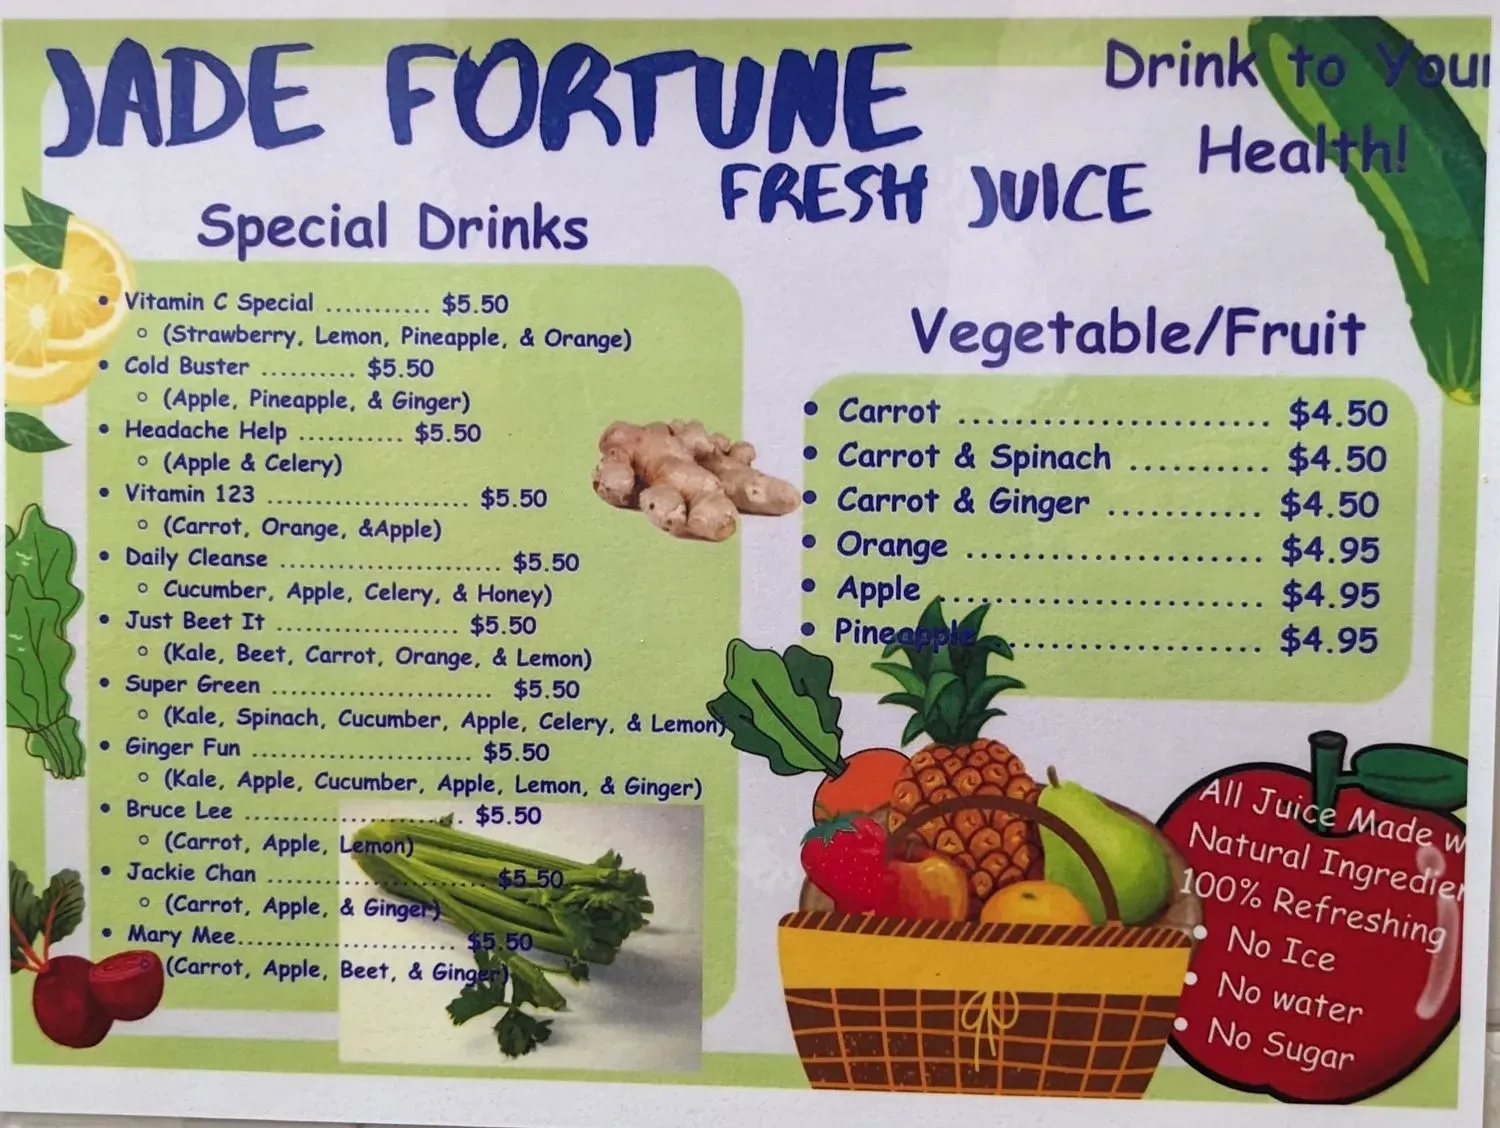 JADE FORTUNE
FRESH JUICE
Drink to Your
Health!
Special Drinks
• Vitamin C Special ........... $5.50
○ (Strawberry, Lemon, Pineapple, & Orange)
• Cold Buster .......... $5.50
○ (Apple, Pineapple, & Ginger)
• Headache Help ........... $5.50
○ (Apple & Celery)
• Vitamin 123 ..................... $5.50
○ (Carrot, Orange, &Apple)
• Daily Cleanse ....................... $5.50
○ Cucumber, Apple, Celery, & Honey)
• Just Beet It ................... $5.50
○ (Kale, Beet, Carrot, Orange, & Lemon)
• Super Green ....................... $5.50
○ (Kale, Spinach, Cucumber, Apple, Celery, & Lemon)
• Ginger Fun ....................... $5.50
○ (Kale, Apple, Cucumber, Apple, Lemon, & Ginger)
• Bruce Lee ....................... $5.50
○ (Carrot, Apple, Lemon)
• Jackie Chan ....................... $5.50
○ (Carrot, Apple, & Ginger)
• Mary Mee....................... $5.50
○ (Carrot, Apple, Beet, & Ginger)
Vegetable/Fruit
• Carrot ...................... $4.50
• Carrot & Spinach .......... $4.50
• Carrot & Ginger ........... $4.50
• Orange ..................... $4.95
• Apple ....................... $4.95
• Pineapple .................. $4.95
All Juice Made w
Natural Ingredien
100% Refreshing
• No Ice
• No water
• No Sugar